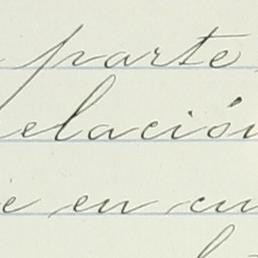 parte,
elación
e en cu